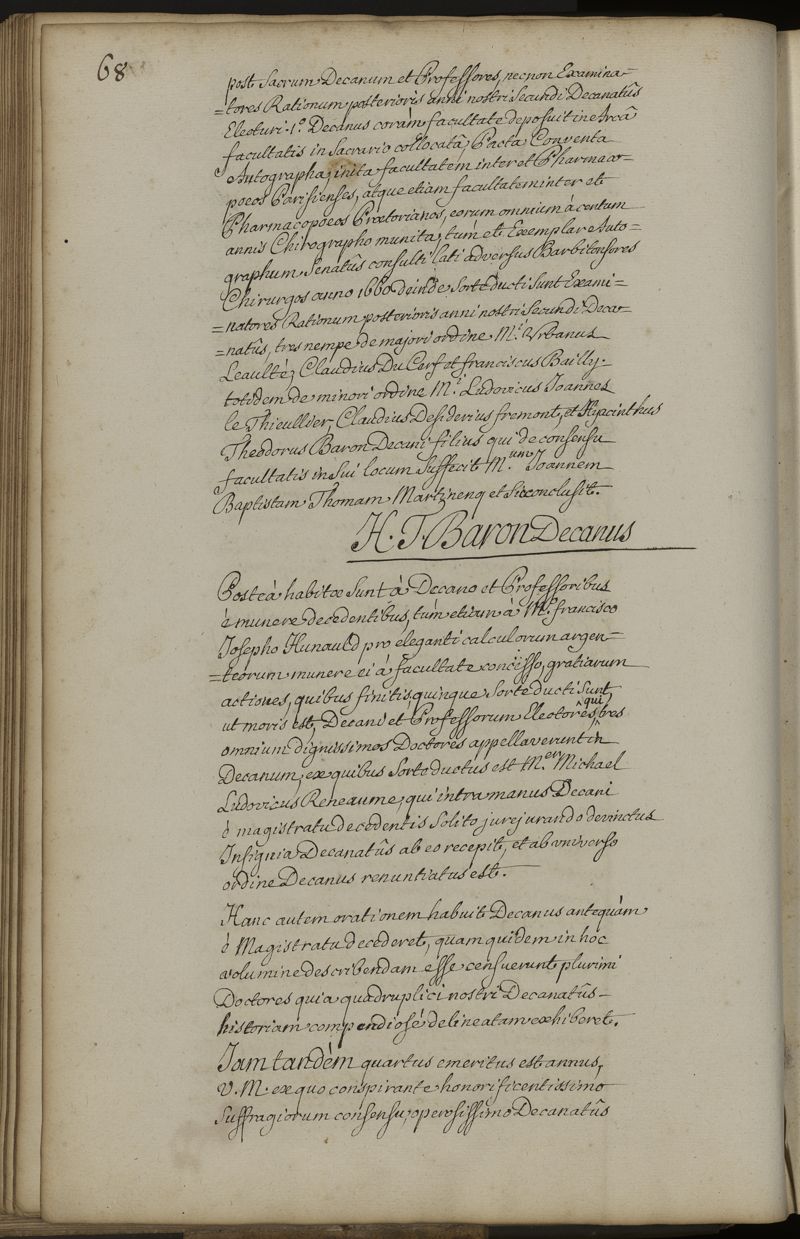 68
post Sacrum Decanum et Professores, necnon Examina-
=tores Rationum posterioris anni nostri Secundi Decanatûs
Electuri. 1.° Decanus coràm facultate deposuit in Arcâ
facultatis in Sacrario collocatâ, Pacta Conventa
Autographa, inita facultatem inter et Pharmaco-
poeos Parisienses, atque etiam facultatem inter et
Pharmacopoeos Prætorianos, eorum omnium à centum
annis Chirographo munita, tùm et Exemplar Auto=
graphum Senatûs consulti lati adversus Barbitonsores
Chirurgos anno 1660 deinde Sorte ducti Sunt Exami=
=natores Rationum posterioris anni nostri Secundi Deca-
=natûs, tres nempe de majori ordine M.i Urbanus
Leaulté, Claudius Du Cerf et franciscus Bailly.
totidem de minori ordine M.i Ludovicus Joannes
le Thieullier, Claudius Desiderius fremont, et Hyacinthus
Theodorus Baron Decani filius qui de consensu
facultatis in Sui locum Suffecit M.um Joannem
Baptistam Thomam Martinenq et Sic conclusit.
H. T. Baron Decanus
Posteà habitæ Sunt à Decano et Professoribus
è munere decedentibus, tùm etiam à M.o francisco
Josepho Hunauld pro eleganti calculorum argen=
=teorum munere ei à facultate concesso, gratiarum
actiones, quibus finitis, quinque Sorte ducti Sunt,
ut moris est, Decani et Professorum Electores, qui tres
omnium dignissimos Doctores appellaverunt in
Decanum, ex quibus Sorte ductus est M.er Michael
Ludovicus Reneaume, qui intra manus Decani
è magistratu decedentis Solito jurejurando devinctus
Insignia Decanatûs ab eo recepit, et ab universo
ordine Decanus renuntiatus est.
Hanc autem orationem habuit Decanus antequàm
è Magistratu decederet, quam quidem in hoc
volumine describendam esse censuerunt plurimi
Doctores quia quadruplici nostri Decanatûs-
historiam compendiosé delineatam exhiberet.
Jam tandèm quartus emeritus est annus,
V. M. ex quo conspirante honorificentissimo
Suffragiorum consensu, operosissimo Decanatûs